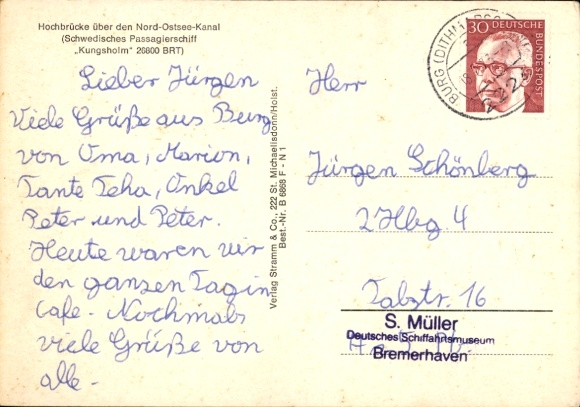 Hochbrücke über den Nord-Ostsee-Kanal
(Schwedisches Passagierschiff
„Kungsholm" 26800 BRT)
Lieber Jürgen
Viele Grüße aus Burg
von Oma, Marion,
Tante Teha, Onkel
Peter und Peter.
Heute waren wir
den ganzen Tag in
Cafe. Nochmals
viele Grüße von
alle.
Verlag Stramm & Co., 222 St. Michaelisdonn/Holst.
Best.-Nr. B 6868 F - N 1
30 DEUTSCHE BUNDESPOST
BURG (DITHM
2224
Herr
Jürgen Schönberg
2 Hbg. 4
Talstr. 16
S. Müller
Deutsches Schiffahrtsmuseum
Bremerhaven